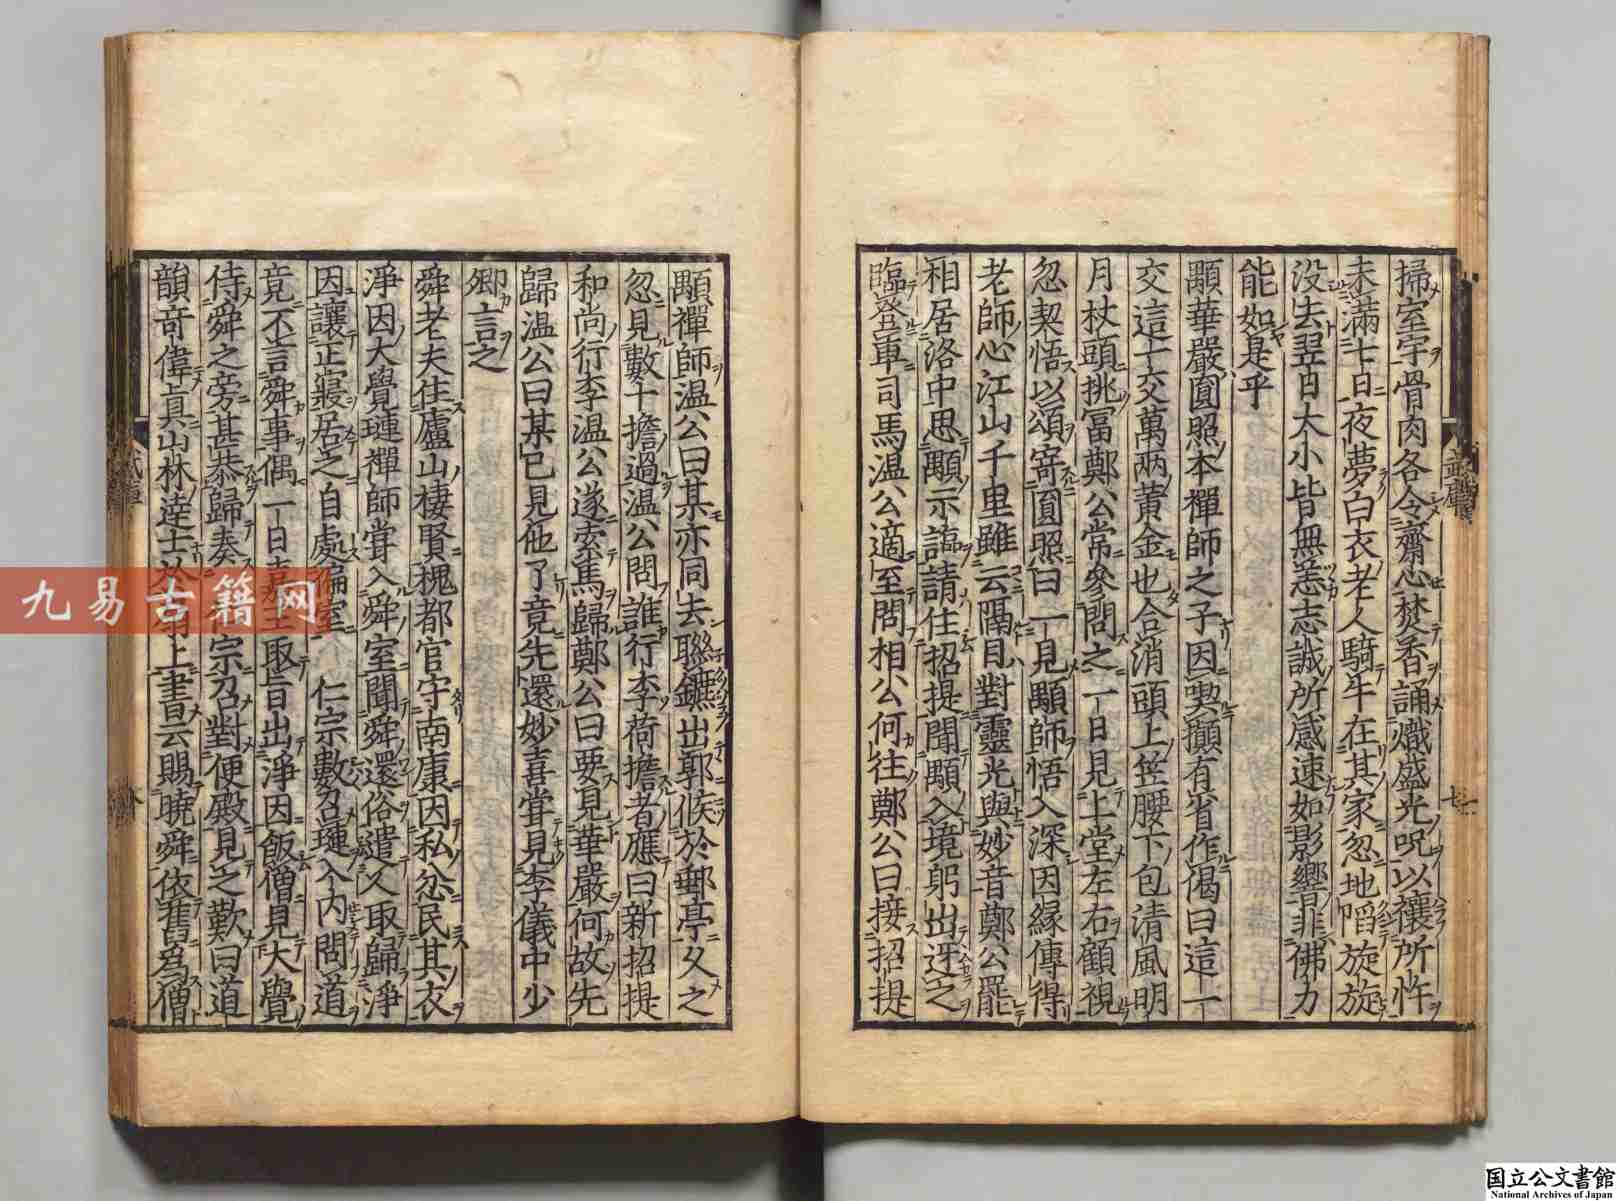 掃室宇骨肉各令齋心焚香誦熾盛光呪以禳所忤
未滿七日夜夢白衣老人騎牛在其家忽地陷旋旋
没去翌日大小皆無恙志誠所感速如影響非佛力
能如是乎
顒華嚴圓照本禪師之子因喫攧有省作偈曰這一
交這一交萬兩黃金也合消頭上笠腰下包清風明
月杖頭挑冨鄭公常參問之一日見上堂左右顧視
忽契悟以頌寄圓照曰一見顒師悟入深因緣傳得
老師心江山千里雖云隔目對靈光與妙音鄭公罷
相居洛中思顒示誨請住招提聞顒入境躬出迓之
臨登車司馬温公適至問相公何往鄭公曰接招提
顒禪師温公曰某亦同去聯鑣出郭候於郵亭久之
忽見數十擔過温公問誰行李荷擔者應曰新招提
和尚行李温公遂索馬歸鄭公曰要見華嚴何故先
歸温公曰某已見他了竟先還妙喜甞見李儀中少
卿言之
舜老夫住廬山棲賢槐都官守南康因私忿民其衣
淨因大覺璉禪師甞入舜室聞舜還俗遣人取歸淨
因讓正寢居之自處偏室　仁宗數召璉入内問道
竟不言舜事偶一日嘉王取旨出淨因飯僧見大覺
侍舜之旁甚恭歸奏　宗召對便殿見之歎曰道
韻奇偉真山林達士於　上書云賜曉舜依舊爲僧
武庫
七
九易古籍网
国立公文書館
National Archives of Japan